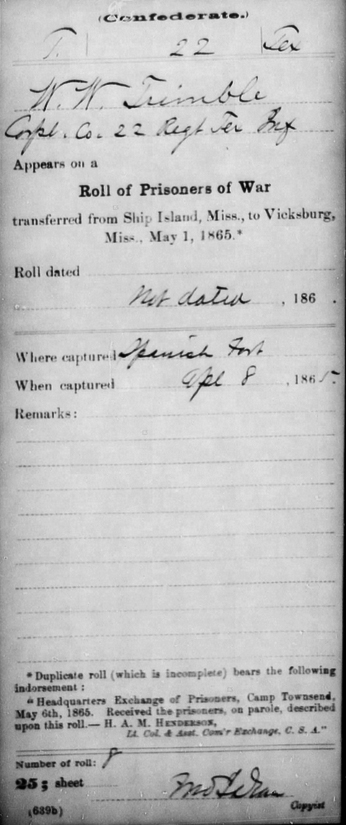 (Confederate.)
T. 22 Tex
W. W. Trimble
Corpl. Co. 22 Regt Tex Inf
Appears on a
Roll of Prisoners of War
transferred from Ship Island, Miss., to Vicksburg,
Miss., May 1, 1865.*
Roll dated
Not dated , 186 .
Where captured Spanish Fort
When captured Apl 8 , 1865.
Remarks:
*Duplicate roll (which is incomplete) bears the following
indorsement:
"Headquarters Exchange of Prisoners, Camp Townsend,
May 6th, 1865. Received the prisoners, on parole, described
upon this roll.—H. A. M. HENDERSON,
Lt. Col. & Asst. Com'r Exchange, C. S. A."
Number of roll: 8
25; sheet
(639b) Copyist